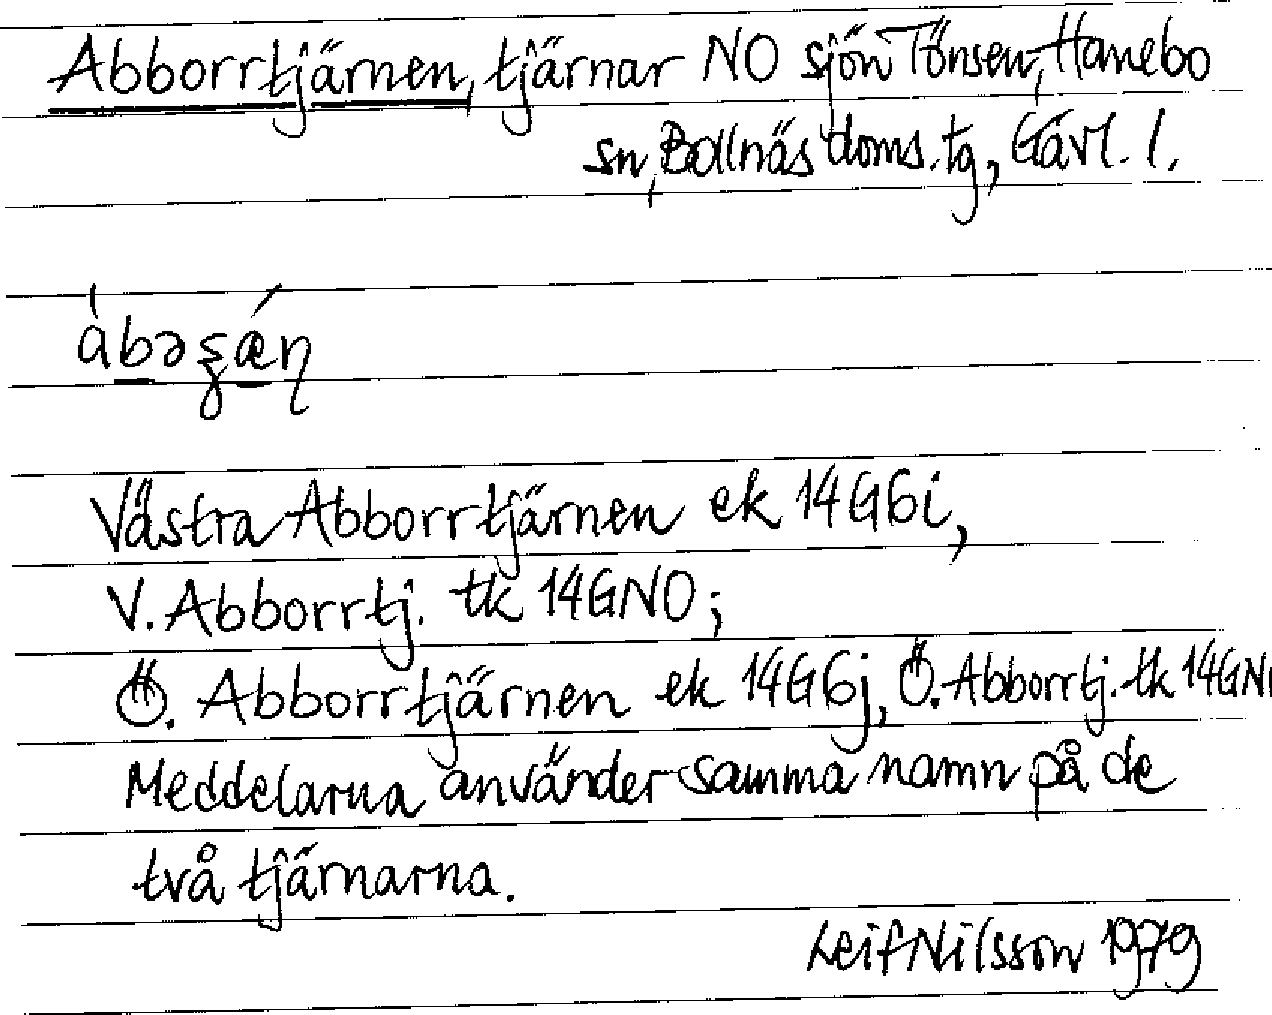 Abborrtjärnen, tjärnar NO sjön Tönsen, Hanebo
sn, Bollnäs doms. tg, Gävl. l.
Västra Abborrtjärnen ek 14G6i,
V. Abborrtj. tk 14GNO;
Ö. Abborrtjärnen ek 14G6j, Ö. Abborrtj. tk 14GN
Meddelarna använder samma namn på de
två tjärnarna.
Leif Nilsson 1979